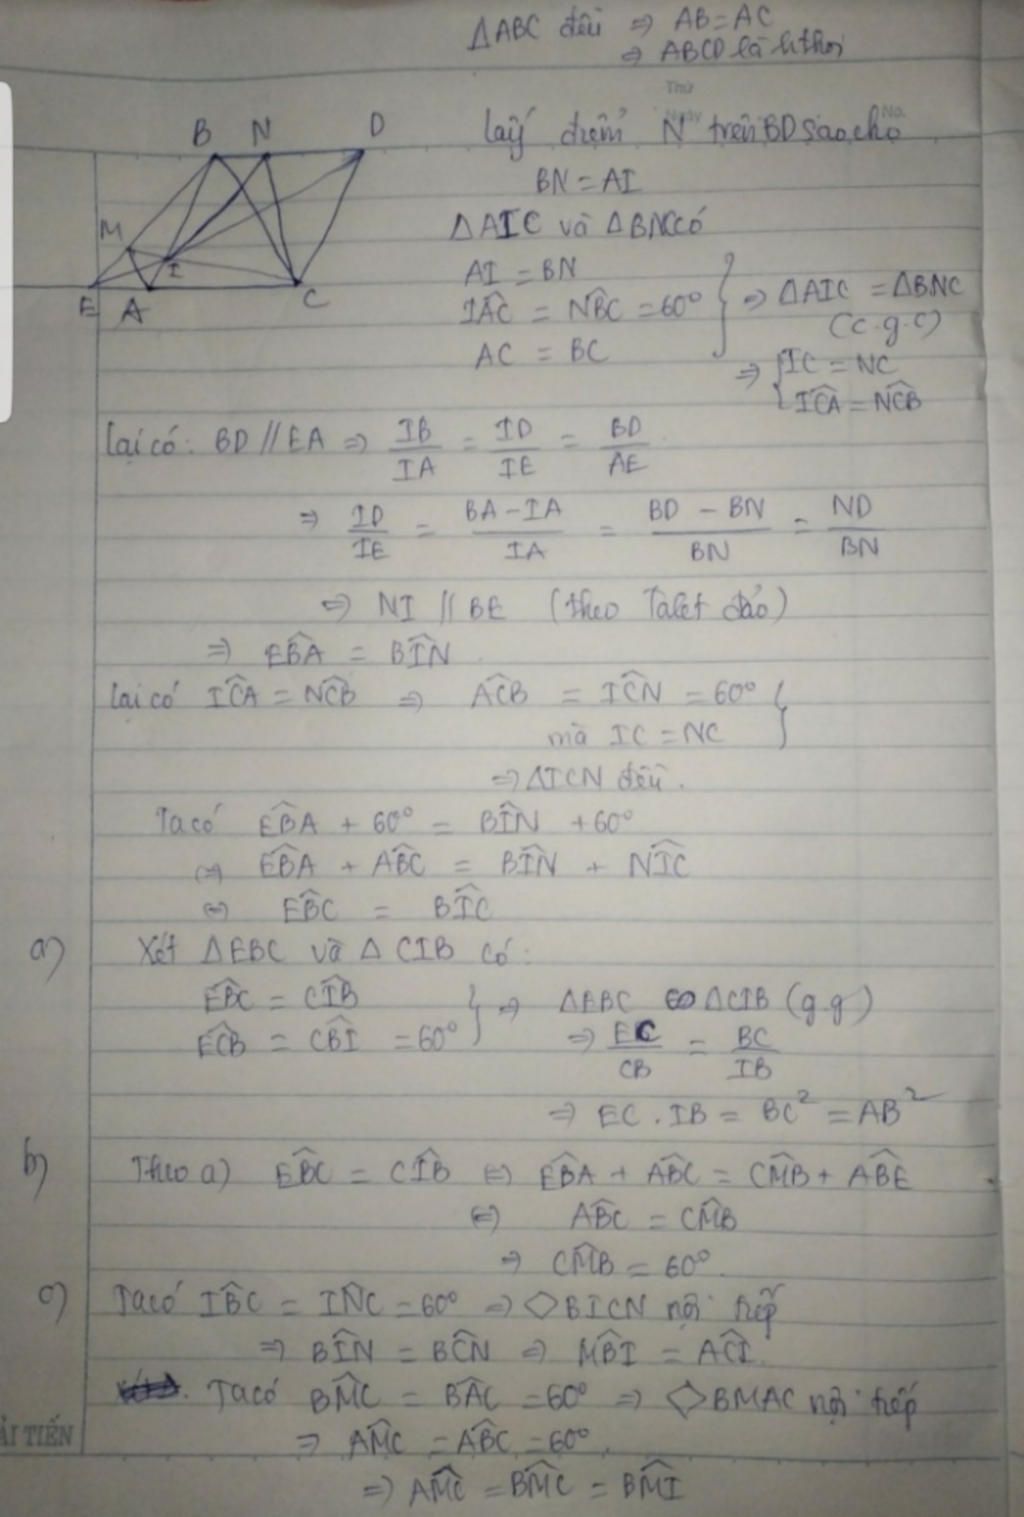 △ABC đều ⇒ AB = AC
⇒ ABCD là hthoi
Thứ
Ngày No.
B N D
lấy điểm N trên BD sao cho
BN = AI
△AIC và △BNC có
M
I
E A C
AI = BN
IÂC = NB̂C = 60° ⇒ △AIC = △BNC
(c.g.c)
AC = BC
⇒ { IC = NC
IĈA = NĈB
Lại có: BD // EA ⇒ IB/IA = ID/IE = BD/AE
⇒ ID/IE = BA - IA/IA = BD - BN/BN = ND/BN
⇒ NI // BE (theo Talet đảo)
⇒ EB̂A = BÎN
Lại có IĈA = NĈB ⇒ AĈB = IĈN = 60°
mà IC = NC
⇒ △ICN đều.
Ta có EB̂A + 60° = BÎN + 60°
⇔ EB̂A + AB̂C = BÎN + NÎC
⇔ EB̂C = BÎC
a) Xét △EBC và △CIB có:
EB̂C = CÎB
EĈB = CB̂I = 60° } ⇒ △EBC ∽ △CIB (g.g)
⇒ EC/CB = BC/IB
⇒ EC . IB = BC² = AB²
b) Theo a) EB̂C = CÎB ⇔ EB̂A + AB̂C = CM̂B + AB̂E
⇔ AB̂C = CM̂B
⇒ CM̂B = 60°.
c) Ta có IB̂C = IN̂C = 60° ⇒ ◇BICN nội tiếp
⇒ BÎN = BĈN ⇒ MB̂I = AĈI.
Ta có BM̂C = BÂC = 60° ⇒ ◇BMAC nội tiếp
⇒ AM̂C = AB̂C = 60°.
⇒ AM̂C = BM̂C = BM̂I
ẢI TIẾN